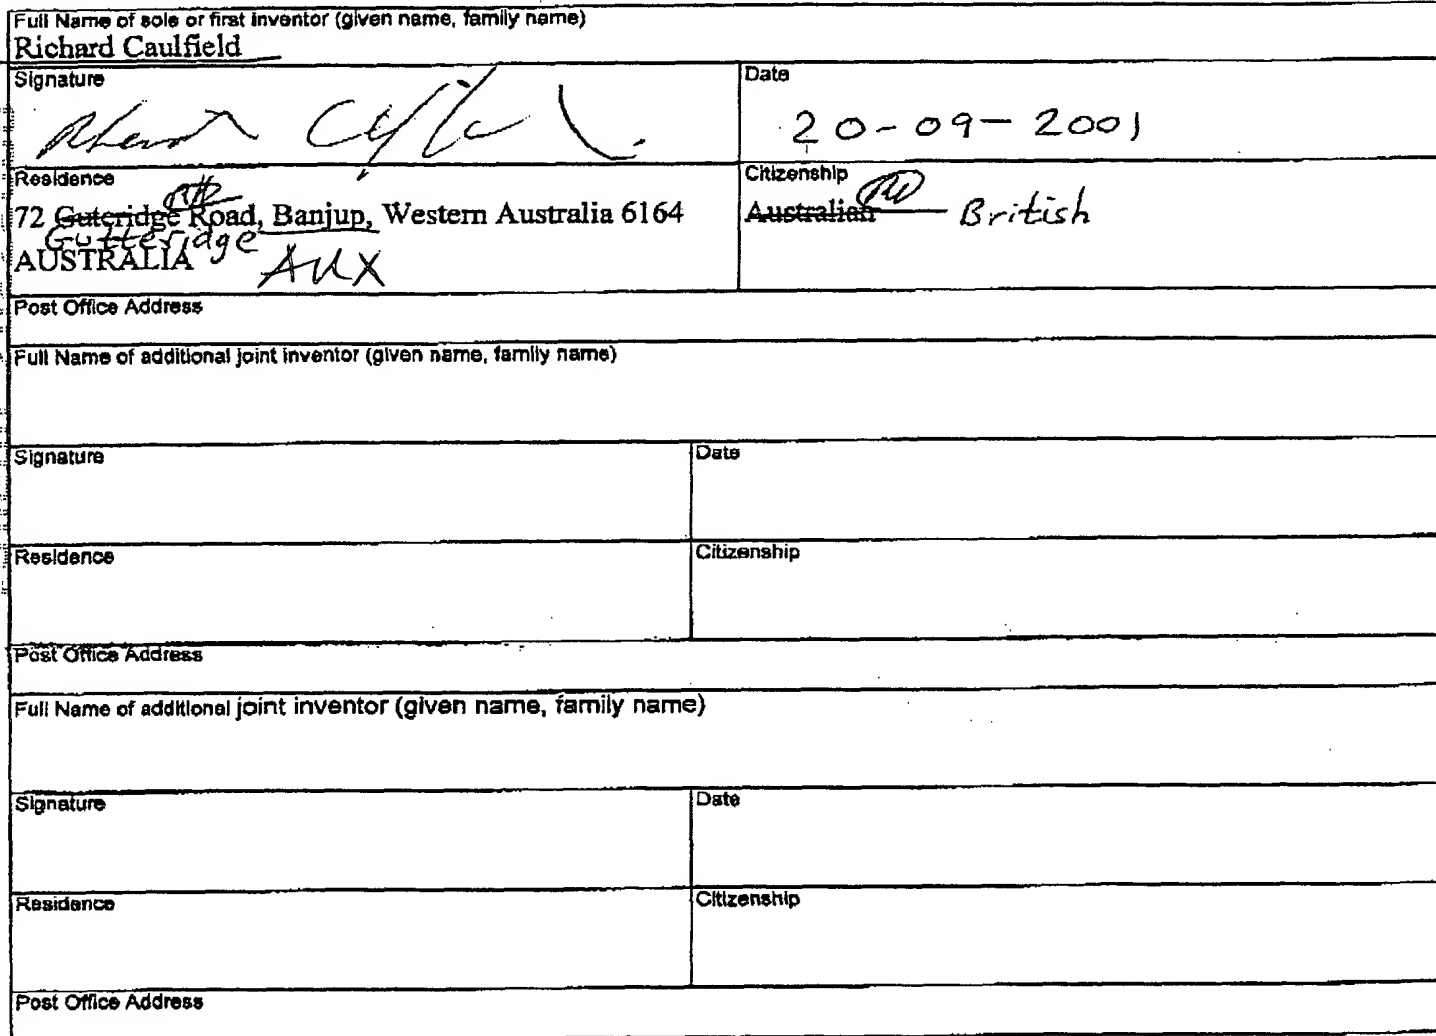 Full Name of sole or first inventor (given name, family name)
Richard Caulfield
Signature
Date
20-09-2001
Residence
Citizenship
72 Guteridge Road, Banjup, Western Australia 6164
Australian British
Gutteridge
AUSTRALIA AUX
Post Office Address
Full Name of additional joint inventor (given name, family name)
Signature
Date
Residence
Citizenship
Post Office Address
Full Name of additional joint inventor (given name, family name)
Signature
Date
Residence
Citizenship
Post Office Address